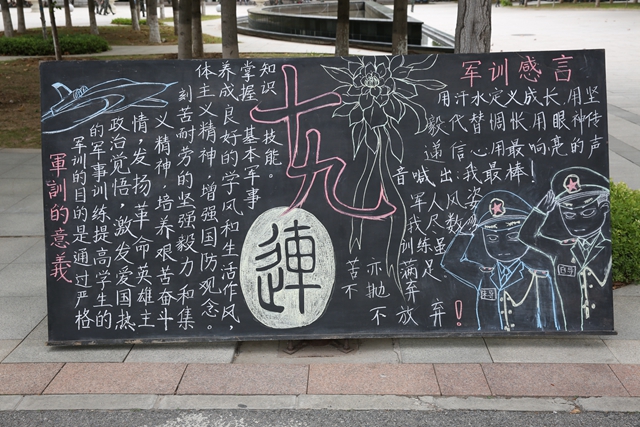 軍訓的意義
军训的目的是通过严格
的军事训练提高学生的
政治觉悟，激发爱国热
情，发扬革命英雄主
义精神，培养艰苦奋斗
刻苦耐劳的坚强毅力和集
体主义精神，增强国防观念。
养成良好的学风和生活作风，
掌握基本军事
知识技能。
十九
連
军训感言
用汗水定义成长，用坚
毅代替惆怅用眼神传
递信心用最响亮的声
音喊出：我最棒！
军人风姿
我尽数
训练虽
苦亦满足
不抛弃
不放弃！